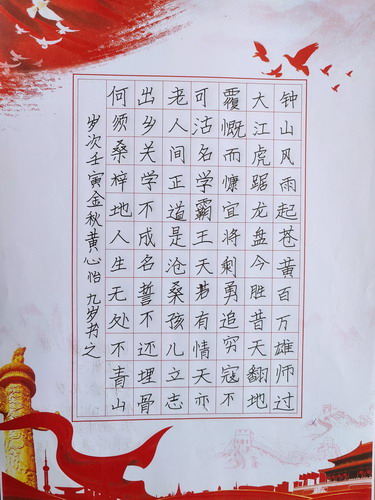 钟山风雨起苍黄百万雄师过
大江虎踞龙盘今胜昔天翻地
覆慨而慷宜将剩勇追穷寇不
可沽名学霸王天若有情天亦
老人间正道是沧桑孩儿立志
出乡关学不成名誓不还埋骨
何须桑梓地人生无处不青山
岁次壬寅金秋黄心怡 九岁书之